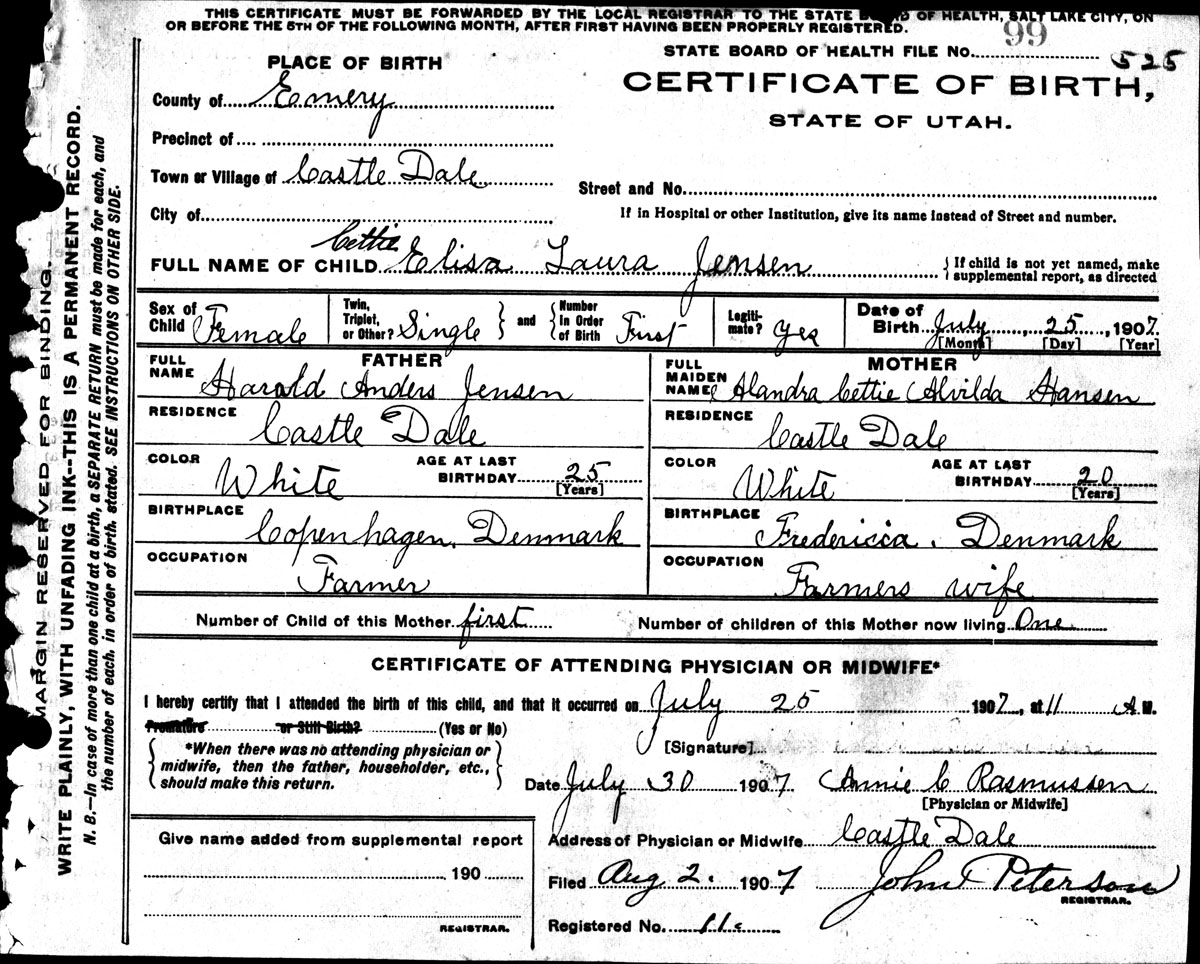 THIS CERTIFICATE MUST BE FORWARDED BY THE LOCAL REGISTRAR TO THE STATE BOARD OF HEALTH, SALT LAKE CITY, ON
OR BEFORE THE 5TH OF THE FOLLOWING MONTH, AFTER FIRST HAVING BEEN PROPERLY REGISTERED.
99
STATE BOARD OF HEALTH FILE No. 525
PLACE OF BIRTH
CERTIFICATE OF BIRTH,
STATE OF UTAH.
County of Emery
Precinct of
Town or Village of Castle Dale
Street and No.
City of
If in Hospital or other Institution, give its name instead of Street and number.
Cettie
FULL NAME OF CHILD Elisa Laura Jensen
{ If child is not yet named, make
supplemental report, as directed
Sex of Child Female
Twin, Triplet, or Other? Single } and { Number in Order of Birth First
Legitimate? Yes
Date of Birth July 25, 1907
[Month] [Day] [Year]
FATHER
FULL NAME Harold Anders Jensen
RESIDENCE Castle Dale
COLOR White AGE AT LAST BIRTHDAY 25
[Years]
BIRTHPLACE Copenhagen, Denmark
OCCUPATION Farmer
MOTHER
FULL MAIDEN NAME Alandra Cettie Alvilda Hansen
RESIDENCE Castle Dale
COLOR White AGE AT LAST BIRTHDAY 20
[Years]
BIRTHPLACE Fredericia. Denmark
OCCUPATION Farmers wife
Number of Child of this Mother first Number of children of this Mother now living One
CERTIFICATE OF ATTENDING PHYSICIAN OR MIDWIFE*
I hereby certify that I attended the birth of this child, and that it occurred on July 25 1907, at 11 A.M.
Premature or Still Birth? (Yes or No)
{ *When there was no attending physician or
midwife, then the father, householder, etc.,
should make this return. }
[Signature]
Date July 30 1907 Annie C Rasmussen
[Physician or Midwife]
Give name added from supplemental report
190
REGISTRAR.
Address of Physician or Midwife Castle Dale
Filed Aug 2. 1907 John Peterson
REGISTRAR.
Registered No.
MARGIN RESERVED FOR BINDING.
WRITE PLAINLY, WITH UNFADING INK--THIS IS A PERMANENT RECORD.
N. B.—In case of more than one child at a birth, a SEPARATE RETURN must be made for each, and
the number of each, in order of birth, stated. SEE INSTRUCTIONS ON OTHER SIDE.